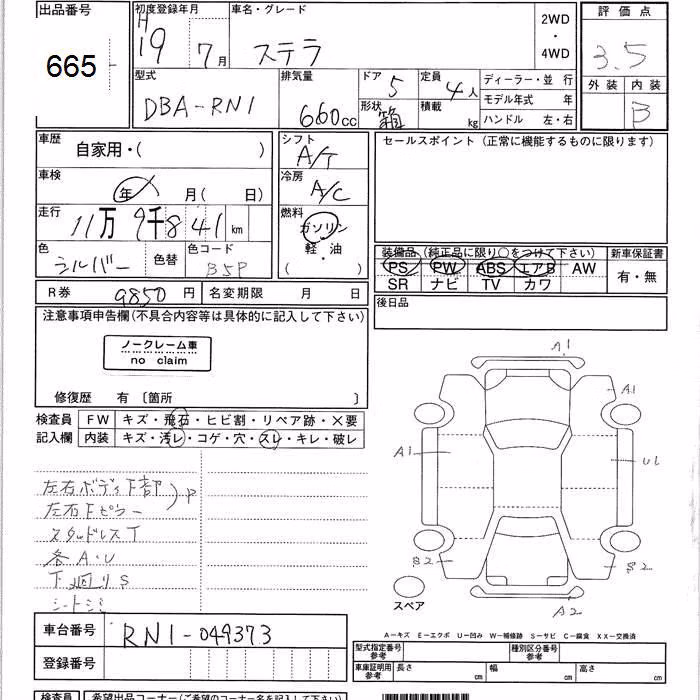 出品番号
665
初度登録年月
H
19
7月
車名・グレード
ステラ
2WD
・
4WD
評価点
3.5
外装 内装
B
型式
DBA-RN1
排気量
660cc
ドア
5
定員
4人
形状
箱
積載
kg
ディーラー・並 行
モデル年式 年
ハンドル 左・右
車歴
自家用・( )
シフト
A/T
セールスポイント (正常に機能するものに限ります)
車検
年 月( 日)
冷房
A/C
走行
11万 9千8 41 km
燃料
ガソリン
軽・油
・
( )
色
シルバー
色替
色コード
B5P
装備品 (純正品に限り○をつけて下さい)
新車保証書
PS PW ABS エアB AW
SR ナビ TV カワ
有・無
R券 9850円
名変期限 月 日
後日品
注意事項申告欄(不具合内容等は具体的に記入して下さい)
ノークレーム車
no claim
修復歴 有 〔箇所 〕
検査員
記入欄
FW キズ・飛石・ヒビ割・リペア跡・X要
内装 キズ・汚レ・コゲ・穴・スレ・キレ・破レ
左右ボディ下部
左右Fピラー
)P
スタッドレスT
各A・U
下廻りS
A1
A1
A1
U1
B2
B2
A2
スペア
A-キズ E-エクボ U-凹み W-補修跡 S-サビ C-腐食 XX-交換済
車台番号
RN1-049373
登録番号
型式指定番号
参考
種別区分番号
参考
車庫証明用
参考
長さ cm
幅 cm
高さ cm
検査員
希望出品コーナー(ご希望のコーナー名を記入下さい)